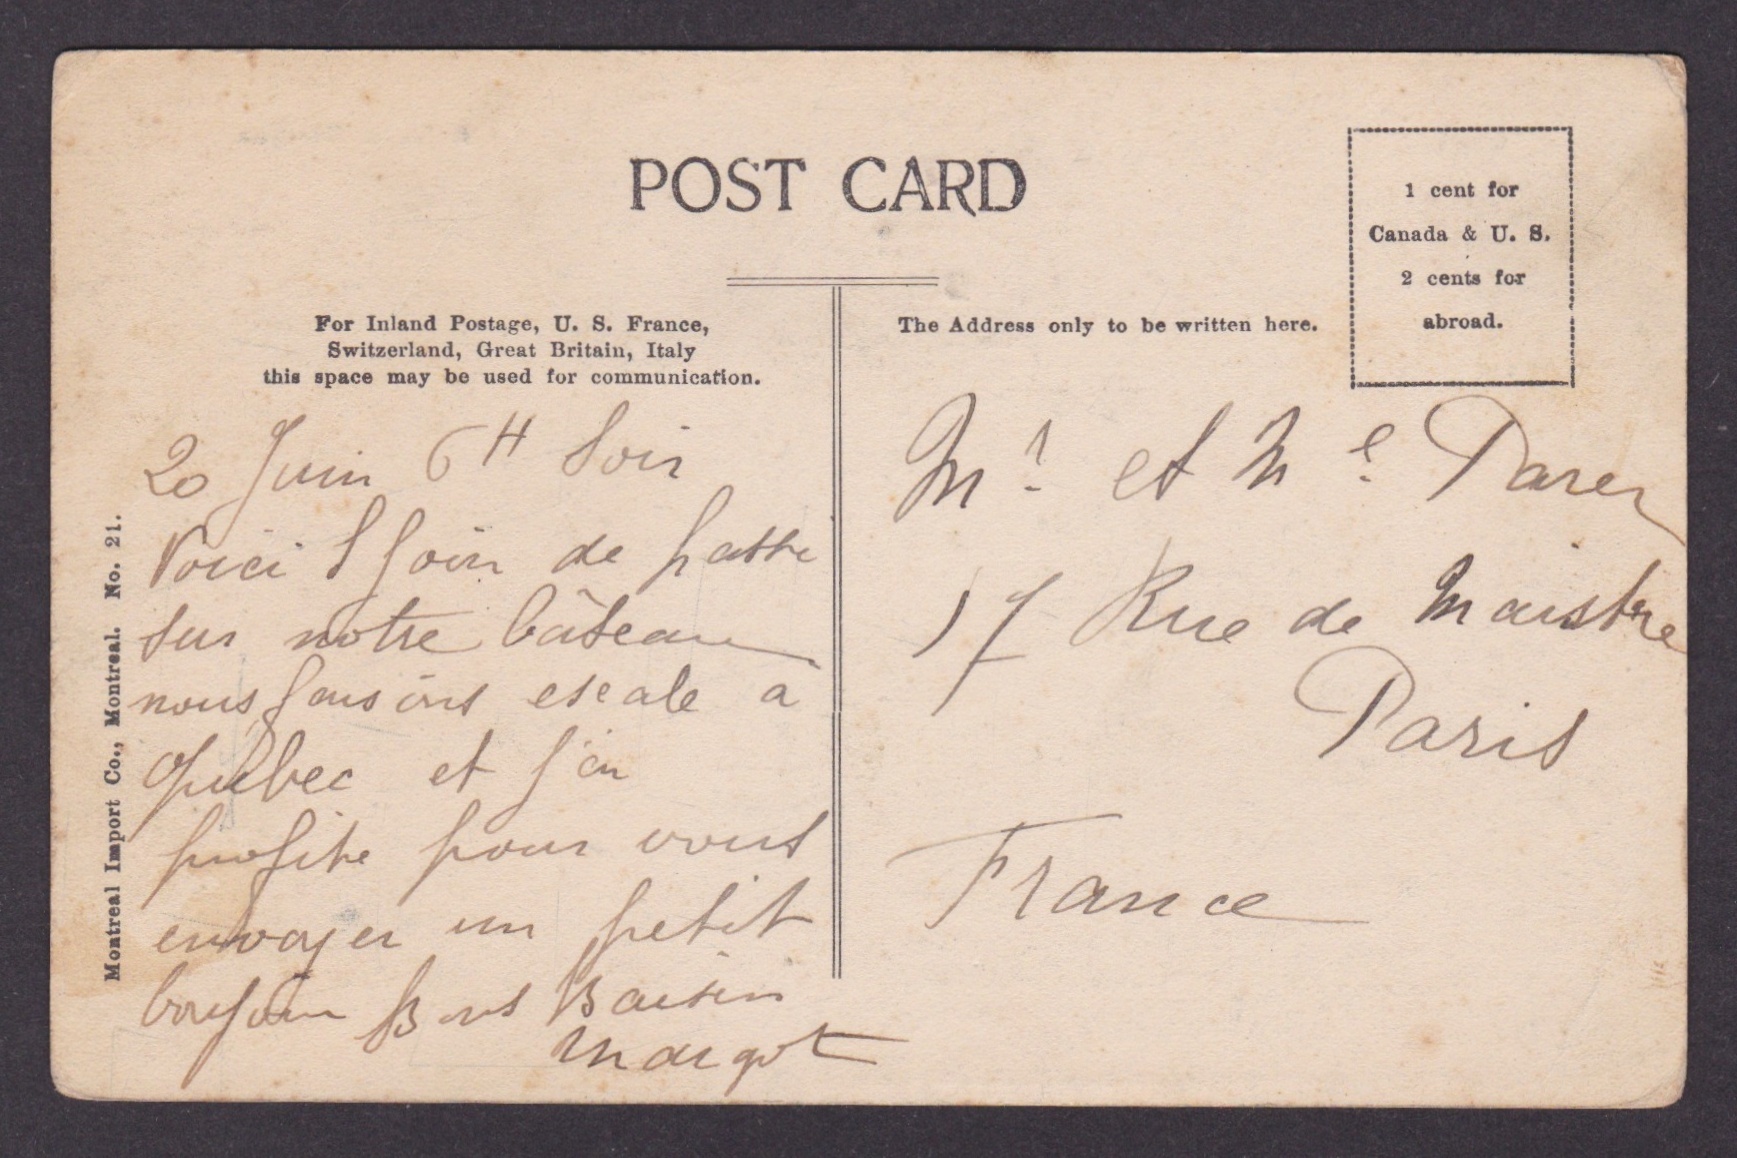 POST CARD
1 cent for
Canada & U. S.
2 cents for
abroad.
For Inland Postage, U. S. France,
Switzerland, Great Britain, Italy
this space may be used for communication.
The Address only to be written here.
Montreal Import Co., Montreal. No. 21.
20 Juin 6H Soir
Voici 1 Join de passe
sur notre bâteau
nous faisons escale a
Québec et j'en
profite pour vous
envoyer un petit
bonjour Bons Baisers
Margot
Mr et Me
17 Rue de Maistre
Paris
France